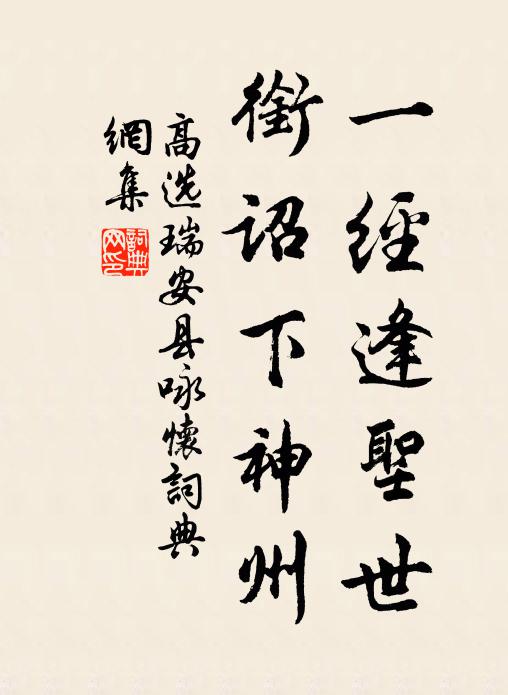 一經逢聖世
銜詔下神州
高选瑞安县咏懷詞典
網集
詞典
网印